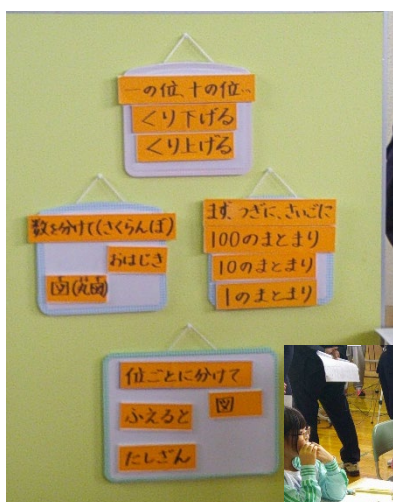 一の位、十の位…
くり下げる
くり上げる
数を分けて(さくらんぼ)
おはじき
図(丸図)
まず、つぎに、さいごに
100のまとまり
10のまとまり
1のまとまり
位ごとに分けて
図
ふえると
たしざん